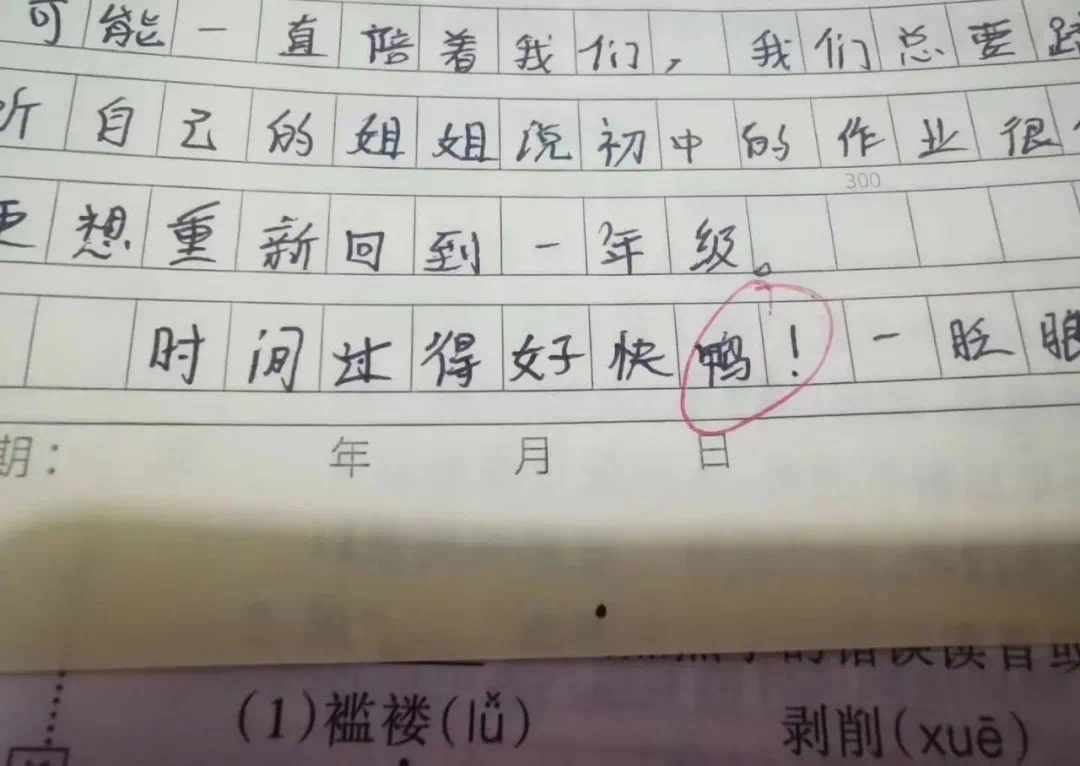 可能一直陪着我们，我们总要
听自己的姐姐说初中的作业很
300
更想重新回到一年级。
时间过得好快鸭！一眨眼
期：　年　月　日
(1)褴褛(lǚ)　剥削(xuē)